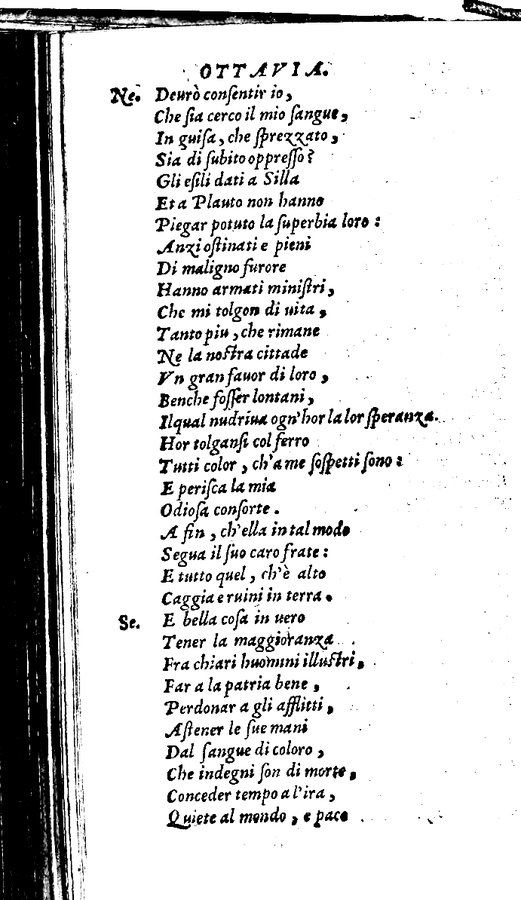 OTTAVIA.
Ne. Deurò conſentir io,
Che ſia cerco il mio ſangue,
In guiſa, che ſprezzato,
Sia di ſubito oppreſſo?
Gli eſili dati a Silla
Et a Plauto non hanno
Piegar potuto la ſuperbia loro:
Anzi oſtinati e pieni
Di maligno furore
Hanno armati miniſtri,
Che mi tolgon di uita,
Tanto piu, che rimane
Ne la noſtra cittade
Vn gran fauor di loro,
Benche foſſer lontani,
Ilqual nudriua ogn'hor la lor ſperanza.
Hor tolganſi col ferro
Tutti color, ch'a me ſoſpetti ſono:
E periſca la mia
Odioſa conſorte.
A fin, ch'ella in tal modo
Segua il ſuo caro frate:
E tutto quel, ch'è alto
Caggia e ruini in terra.
Se. E bella coſa in uero
Tener la maggioranza
Fra chiari huomini illuſtri,
Far a la patria bene,
Perdonar a gli afflitti,
Aſtener le ſue mani
Dal ſangue di coloro,
Che indegni ſon di morte,
Conceder tempo a l'ira,
Quiete al mondo, e pace